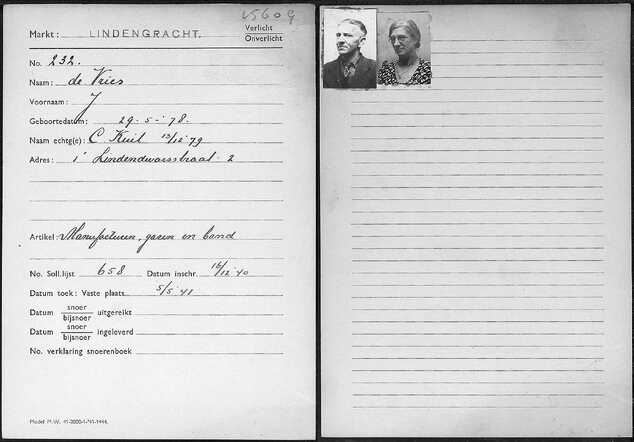 U5609
Markt: LINDENGRACHT.
Verlicht
Onverlicht
No. 232.
Naam: de Vries
Voornaam: J
Geboortedatum: 29-5-'78.
Naam echtg(e): C Kuil 13/12 '79
Adres: 1e Lindendwarsstraat 2
Artikel: Manufacturen, garen en band
No. Soll.lijst 658 Datum inschr. 16/12 '40
Datum toek: Vaste plaats 5/5 '41
Datum snoer/bijsnoer uitgereikt
Datum snoer/bijsnoer ingeleverd
No. verklaring snoerenboek
Model M.W. 41-2000-1-'41-1444.